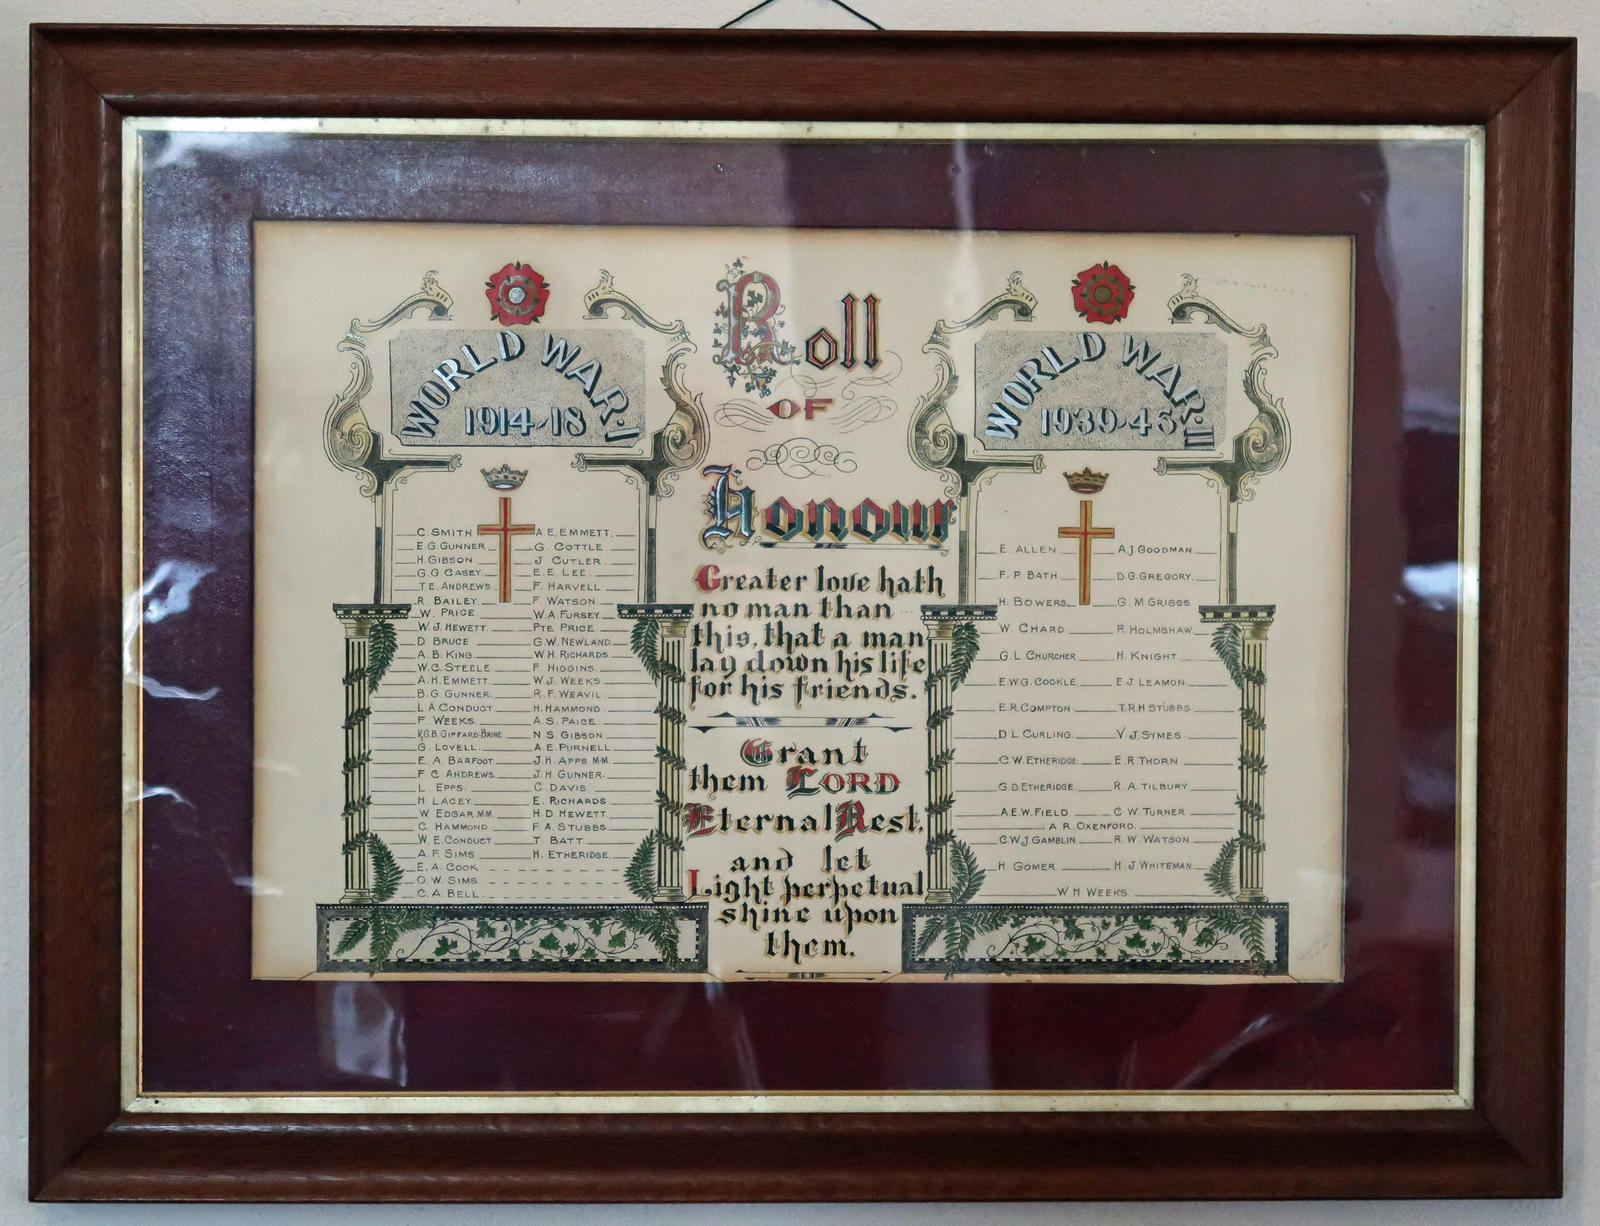 WORLD WAR·I
1914-18
C. SMITH A.E. EMMETT.
E.G GUNNER G. COTTLE
H. GIBSON J. CUTLER.
G. G. CASEY. E. E. LEE.
T.E. ANDREWS. F. HARVELL.
R. BAILEY. F. WATSON
W. PRICE W.A. FURSEY.
W. J. HEWETT. PTE PRICE.
D. BRUCE G.W. NEWLAND
A. B. KING. W.H. RICHARDS.
W. C. STEELE F. HIGGINS.
A.H. EMMETT. W.J. WEEKS
B. G. GUNNER. R. F. WEAVIL.
L A. CONDUCT. H. HAMMOND.
F. WEEKS. A S. PAICE.
R.G.B. GIFFARD-BRINE N. S. GIBSON
G. LOVELL. A. E. PURNELL
E. A. BARFOOT. J.H. APPS. M·M
F C. ANDREWS. J. H GUNNER.
L. EPPS. C. DAVIS.
H. LACEY. E. RICHARDS.
W EDGAR. MM. H. D. HEWETT.
C. HAMMOND F. A. STUBBS
W. E. CONDUCT T BATT
A. F. SIMS. H. ETHERIDGE.
E. A. COOK
O. W. SIMS.
C. A BELL.
Roll
OF
Honour
Greater love hath
no man than
this, that a man
lay down his life
for his friends.
Grant
them LORD
Eternal Rest,
and let
Light perpetual
shine upon
them.
WORLD WAR·II
1939-45
E. ALLEN A.J GOODMAN
F. P BATH D.G. GREGORY.
H. BOWERS G. M GRIGGS
W. CHARD R HOLMSHAW.
G. L CHURCHER H. KNIGHT
E.W.G. COCKLE E J. LEAMON.
E.R COMPTON T.R.H STUBBS
D. L CURLING. V J. SYMES
C.W. ETHERIDGE. E.R THORN
G.D. ETHERIDGE R. A. TILBURY
A.E.W. FIELD C W. TURNER
A R. OXENFORD.
C.W.J. GAMBLIN R. W WATSON
H GOMER H J. WHITEMAN
W H WEEKS